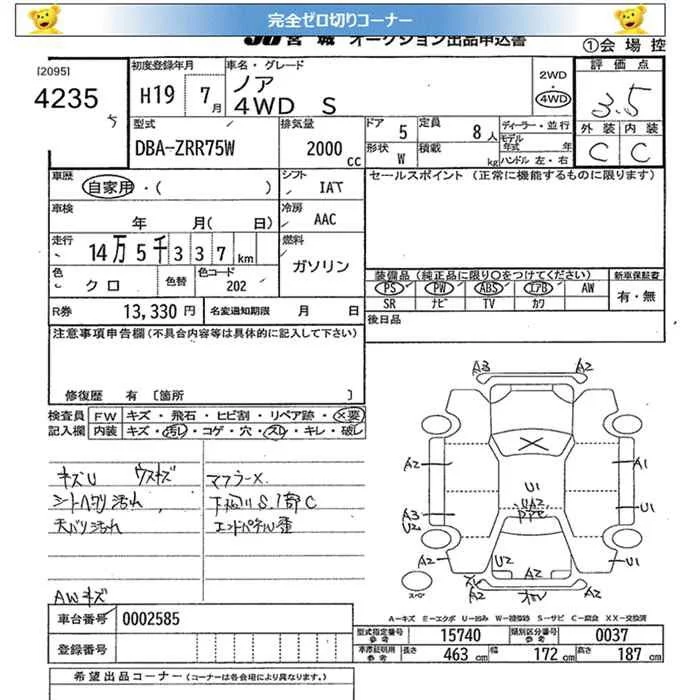 完全ゼロ切りコーナー
JU 宮城 オークション出品申込書
①会場控
[2095]
4235
5
初度登録年月
H19 7月
車名・グレード
ノア
4WD S
2WD
・
4WD
評価点
3.5
外装 内装
C C
型式
DBA-ZRR75W
排気量
2000 cc
ドア 5
定員 8人
形状 W
積載 kg
ディーラー・並行
モデル年式 年
ハンドル 左・右
車歴
自家用・( )
シフト IAT
セールスポイント (正常に機能するものに限ります)
車検
年 月(日)
冷房 AAC
走行
14万5千337km
燃料
ガソリン
色 クロ
色替
色コード 202
装備品 (純正品に限り○をつけてください)
新車保証書
PS PW ABS エアB AW
SR ナビ TV カワ
有・無
R券 13,330円
名変通知期限 月 日
後日品
注意事項申告欄(不具合内容等は具体的に記入して下さい)
修復歴 有〔箇所 〕
検査員記入欄
FW キズ・飛石・ヒビ割・リペア跡・X要
内装 キズ・汚レ・コゲ・穴・スレ・キレ・破レ
キズU ウスキズ
マフラーX
下廻りS.1部C
天バリ汚れ
AWキズ
A3 A2
A2 A1
U1
A3
U2
U1
A2 U2 A2 A1
スペア
A−キズ E−エクボ U−凹み W−補修跡 S−サビ C−腐食 XX−交換済
車台番号 0002585
登録番号
型式指定番号 参考 15740
類別区分番号 参考 0037
車庫証明用 参考 長さ 463cm 幅 172cm 高さ 187cm
希望出品コーナー (コーナーは各会場により異なります。)